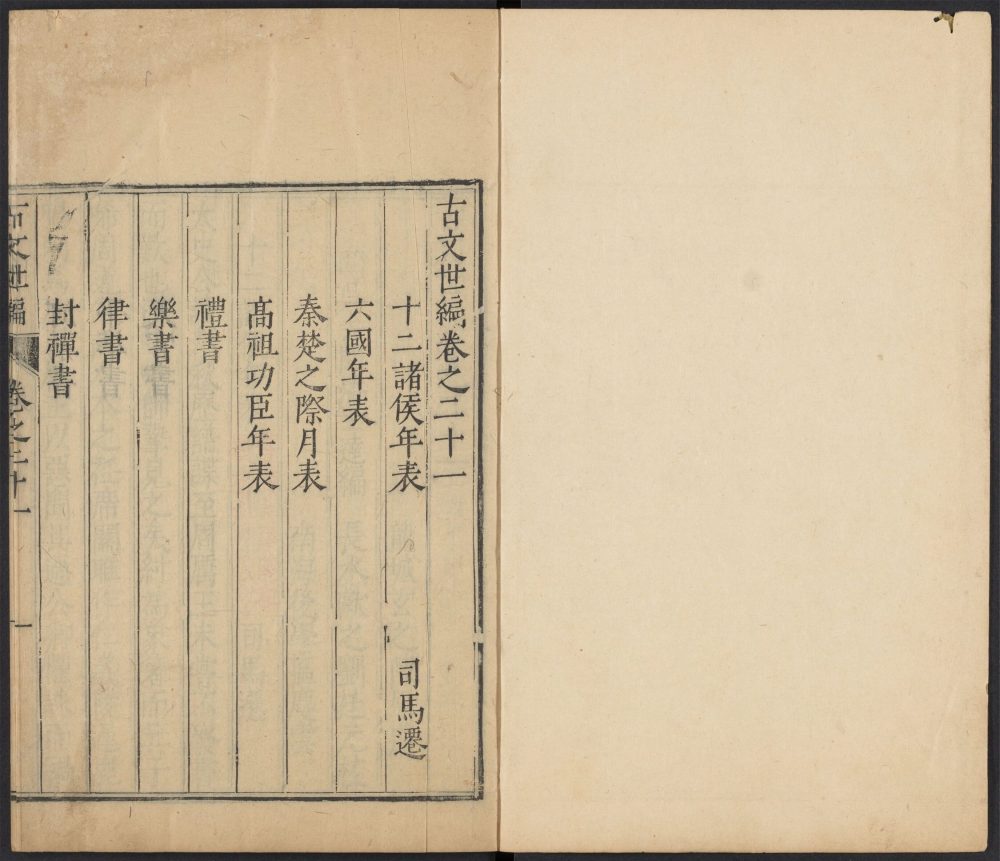 古文世編卷之二十一
十二諸侯年表 司馬遷
六國年表
秦楚之際月表
髙祖功臣年表
禮書
樂書
律書
封禪書
古文世編 卷之二十一 一